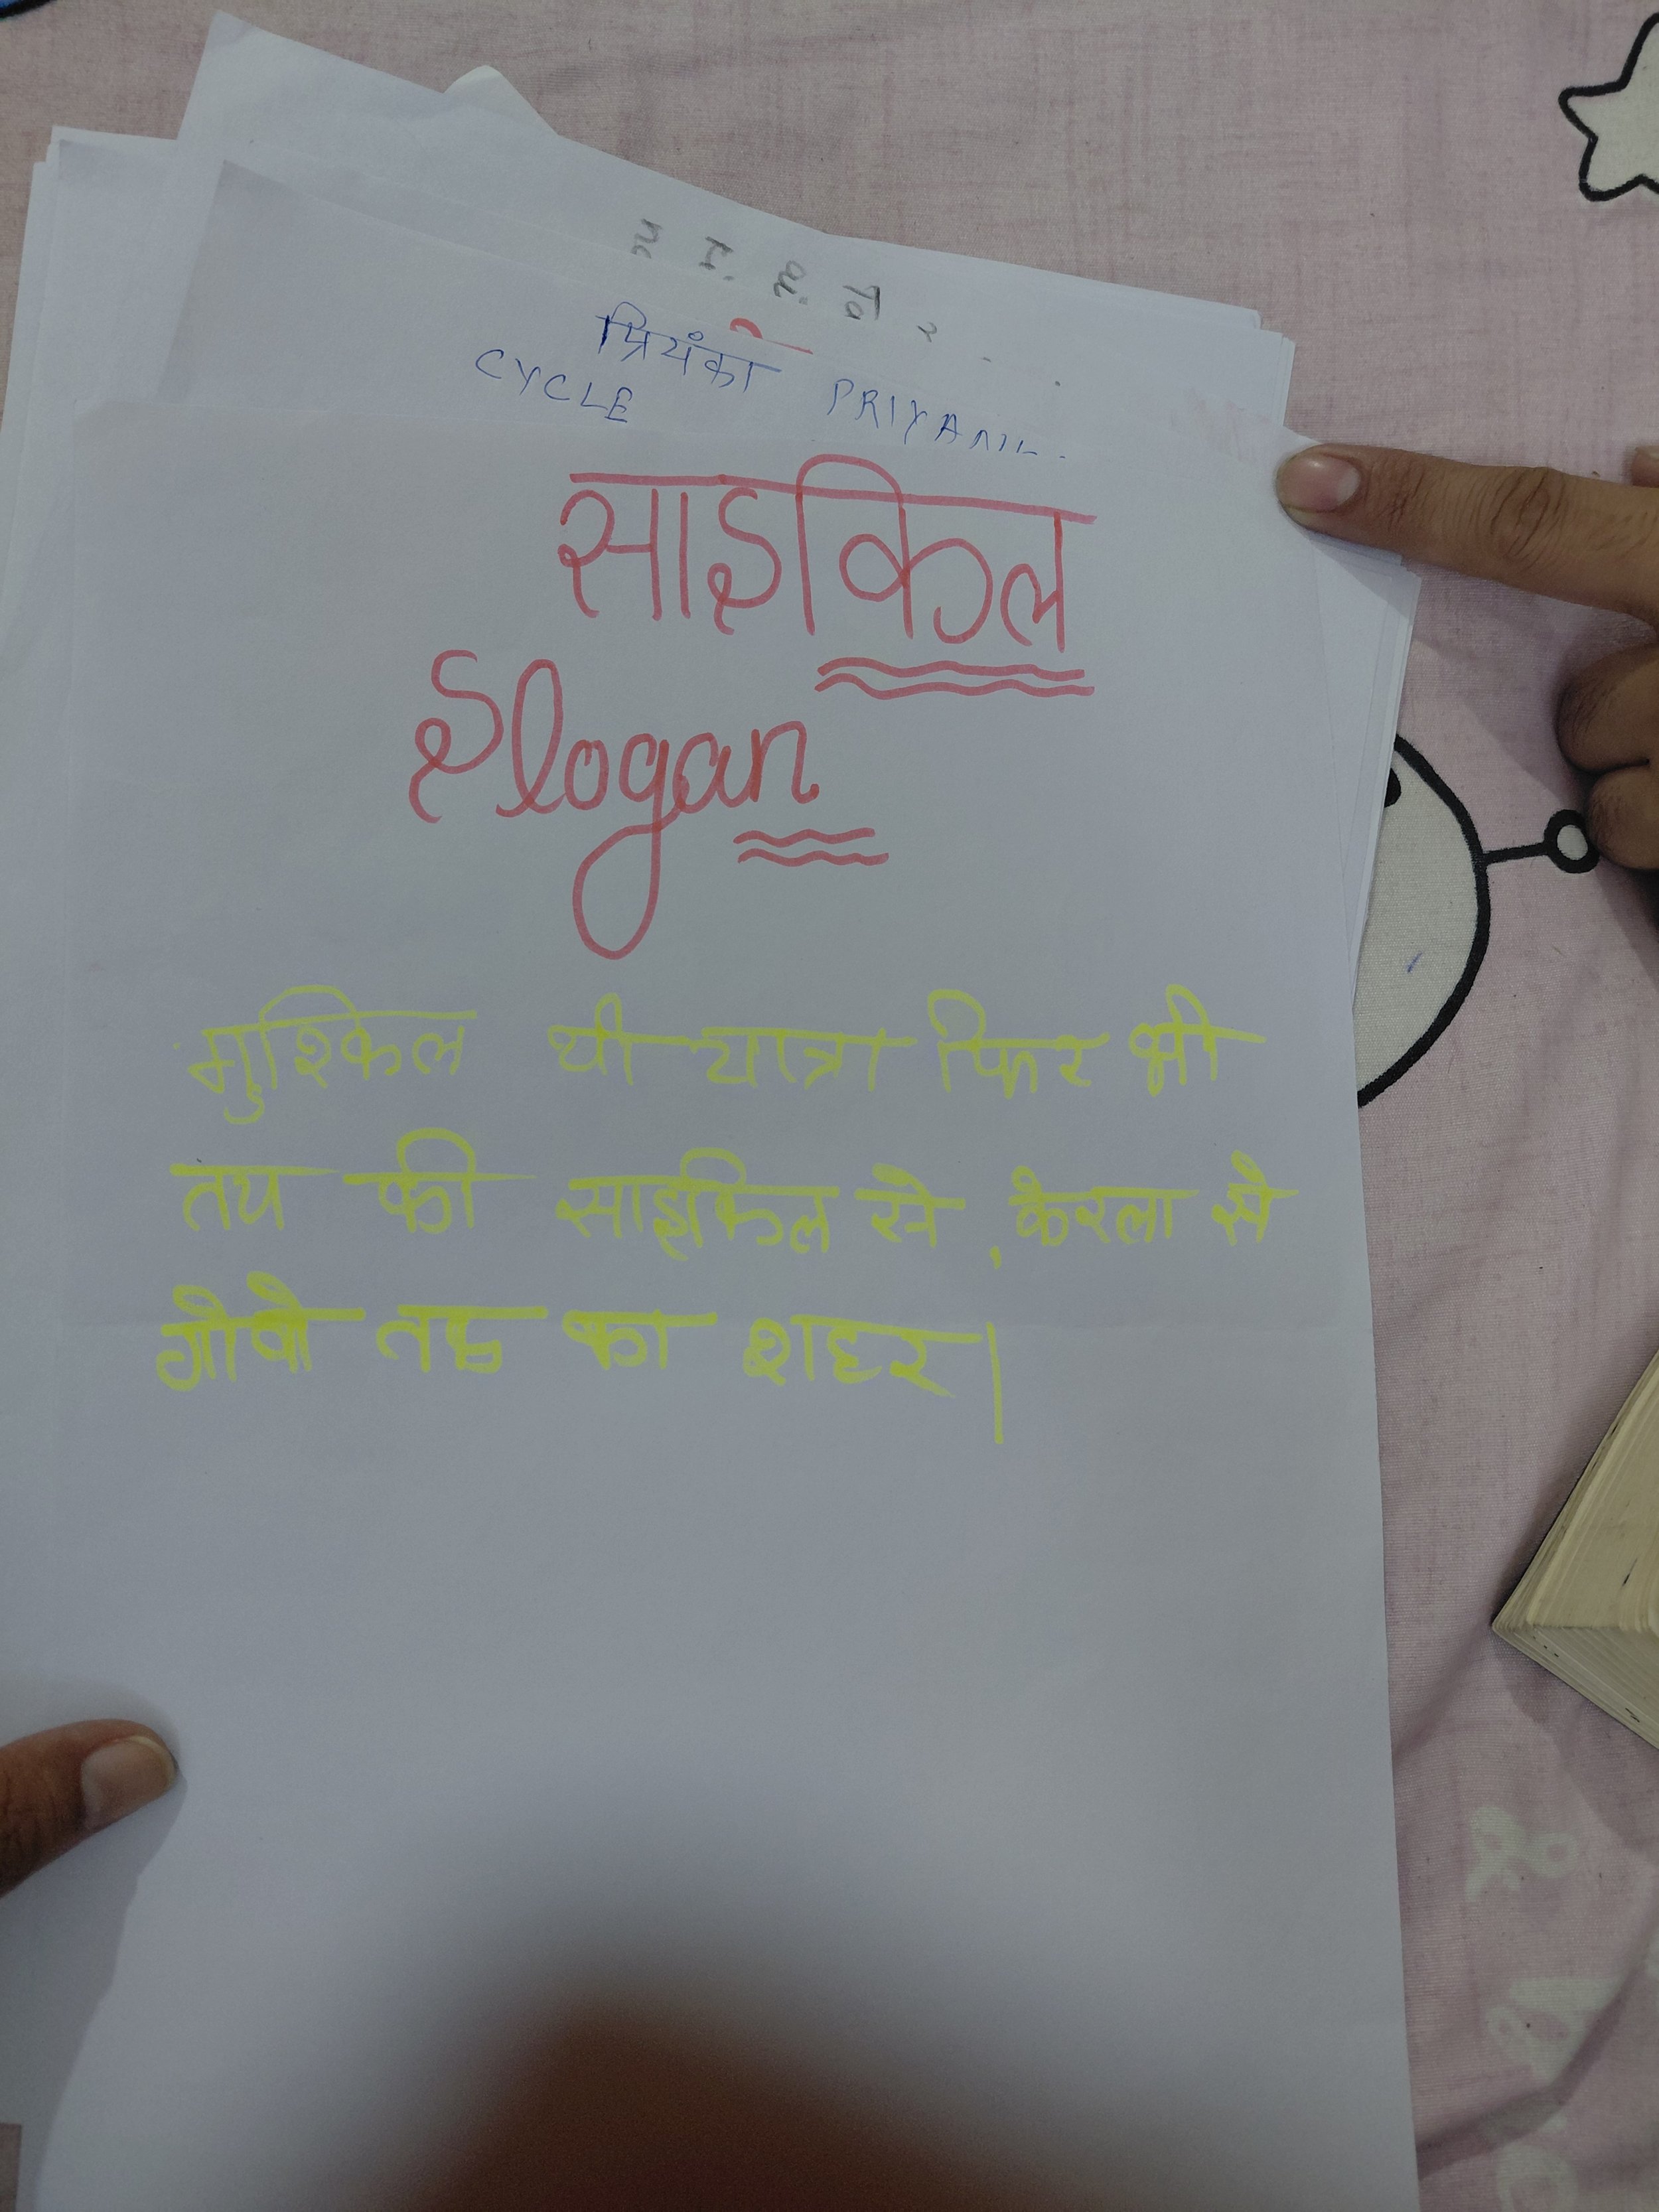 प्रियंका PRIYANK
CYCLE
साइकिल
Slogan
मुश्किल थी यात्रा फिर भी
तय की साइकिल से, केरला से
गाँवों तक का शहर।